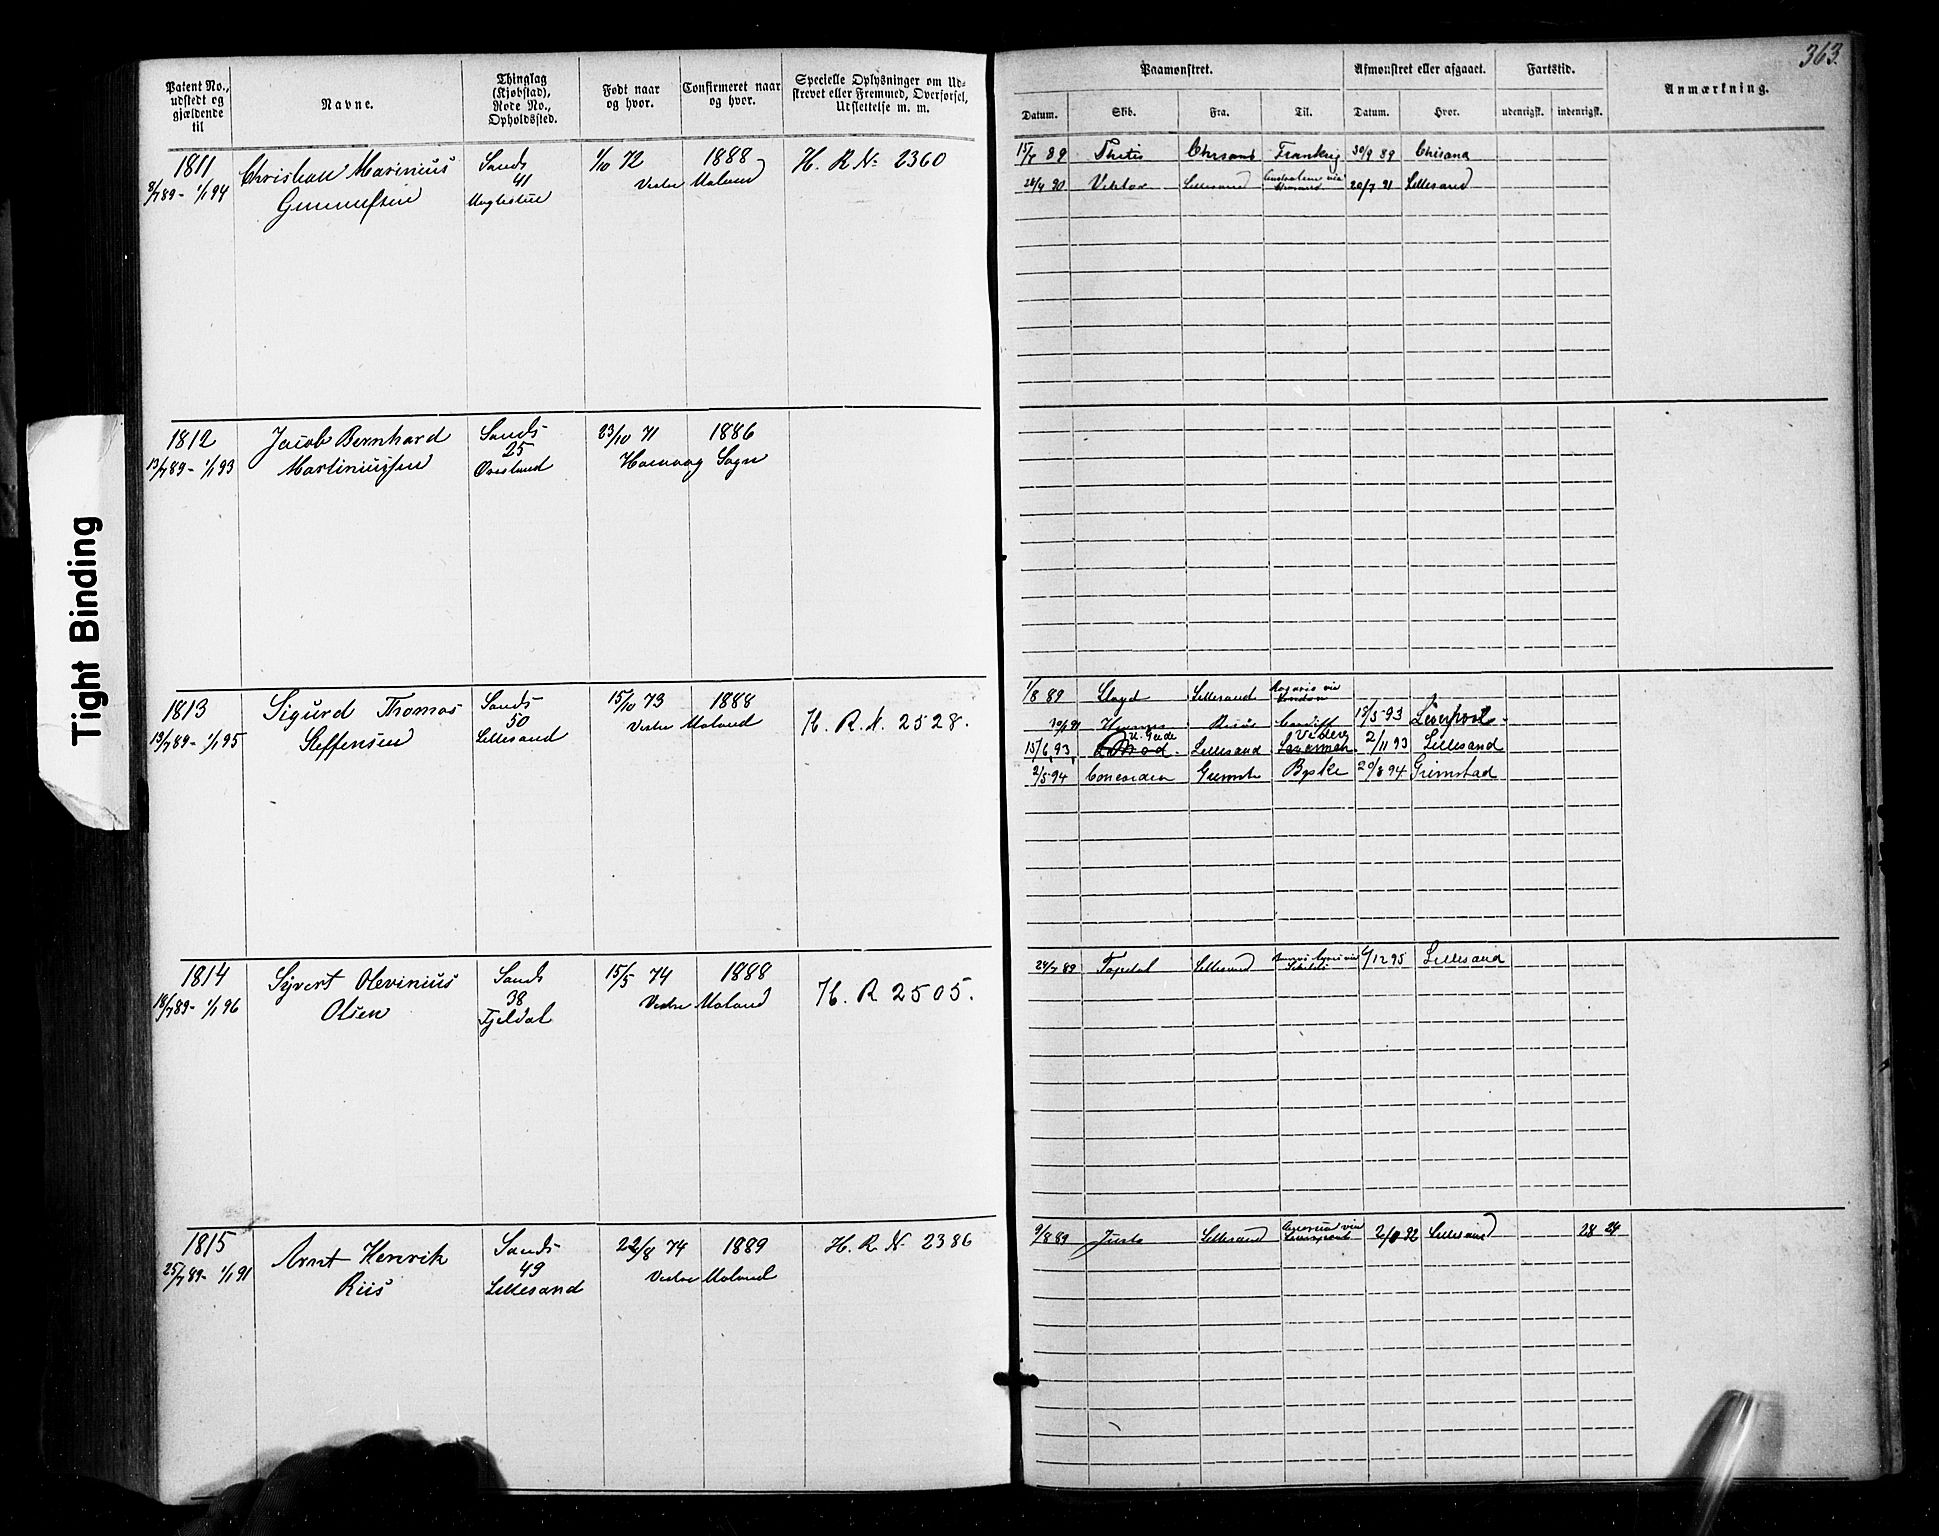 363.
Patent No., udstedt og gjældende til
Navne.
Thinglag (Kjøbstad), Rode No., Opholdssted.
Født naar og hvor.
Confirmeret naar og hvor.
Specielle Oplysninger om Udskrevet eller Fremmed, Overførsel, Udslettelse m. m.
Paamønstret.
Afmønstret eller afgaaet.
Fartstid.
Anmærkning.
Datum.
Skib.
Fra.
Til.
Datum.
Hvor.
udenrigsk.
indenrigsk.
1811 Christian Marinius Sands 1/10 72 1888 H. R. No 2360
8/7 89 - 1/1 94 41 Vestre Moland
15/7 89 Thetis Chrsand Frankrig 30/9 89 Chrisand
26/4 90 Viktor Lillesand 20/7 91 Lillesand
1812 Jacob Bernhard Sands 23/10 71 1886
13/7 89 - 1/1 93 Martiniussen 25 Høivaag Sogn
1813 Sigurd Thomas Sands 15/10 73 1888 H. R. N. 2528.
13/7 89 - 1/1 95 Steffensen 50 Vestre Moland
Lillesand
1/8 89 Lloyd Lillesand via London
Cardiff 18/5 93 Liverpool
15/6 93 Lillesand 2/11 93 Lillesand
2/5 94 Concordia Grimst Byske 20/8 94 Grimstad
1814 Syvert Olevinius Sands 15/5 74 1888 H. R 2505.
18/7 89 - 1/1 96 Olsen 38 Vestre Moland
Tjeldal
24/7 89 Topdal Lillesand 4/12 95 Lillesand
1815 Arnt Henrik Sands 22/8 74 1889 H. R. N 2386
25/7 89 - 1/1 91 Riis 49 Vestre Moland
Lillesand
9/8 89 Justo Lillesand Lillesand 28 24
Tight Binding